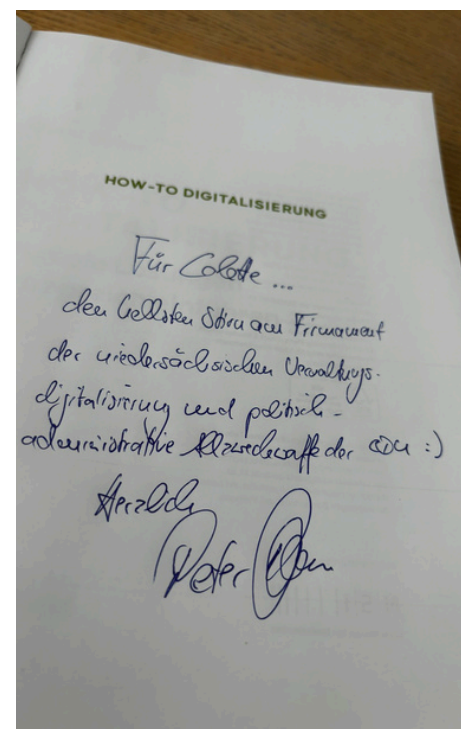 HOW-TO DIGITALISIERUNG
Für Colette ...
den hellsten Stern am Firmament
der niedersächsischen Verwaltungs-
digitalisierung und politisch-
administrative Allzweckwaffe der CDU :)
Herzlich
Peter